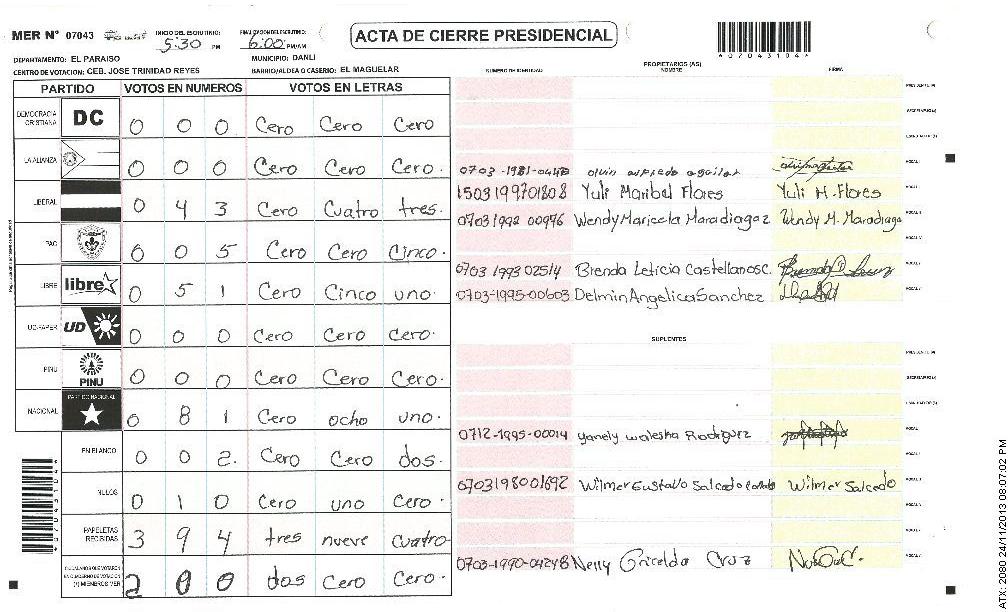 MER N° 07043 INICIO DEL ESCRUTINIO: 5:30 PM FINALIZACION DEL ESCRUTINIO: 6:00 PM/AM
ACTA DE CIERRE PRESIDENCIAL
DEPARTAMENTO: EL PARAISO MUNICIPIO: DANLI
CENTRO DE VOTACION: CEB. JOSE TRINIDAD REYES BARRIO/ALDEA O CASERIO: EL MAGUELAR
PARTIDO VOTOS EN NUMEROS VOTOS EN LETRAS
DEMOCRACIA CRISTIANA DC 0 0 0 Cero Cero Cero
LA ALIANZA 0 0 0 Cero Cero Cero.
LIBERAL 0 4 3 Cero Cuatro tres.
PAC 0 0 5 Cero Cero Cinco.
LIBRE libre 0 5 1 Cero Cinco uno.
UD-FAPER UD 0 0 0 Cero Cero Cero.
PINU PINU 0 0 0 Cero Cero Cero.
NACIONAL PARTIDO NACIONAL 0 8 1 Cero ocho uno.
EN BLANCO 0 0 2. Cero Cero dos.
NULOS 0 1 0 Cero uno Cero.
PAPELETAS RECIBIDAS 3 9 4 tres nueve Cuatro
CIUDADANOS QUE VOTARON EN CUADERNO DE VOTACION (+) MIEMBROS MER 2 0 0 dos Cero Cero.
*07043104*
NUMERO DE IDENTIDAD PROPIETARIOS (AS) NOMBRE FIRMA
0703-1981- olvin alfredo aguilar
1503199701808 Yuli Maribal Flores Yuli M. Flores
0703 1992 00976 Wendy Maricela Maradiagaz Wendy M. Maradiaga
0703 1993 02514 Brenda Leticia Castellanos C.
0703-1995-00603 Delmin Angelica Sanchez
SUPLENTES
0712-1995-00014 Yanely Waleska Rodrguz
0703198001692 Wilmer Gustavo Salcedo Wilmer Salcedo
0703-1990-04248 Nelly Griselda Cruz
ATX: 2080 24/11/2013 08:07:02 PM